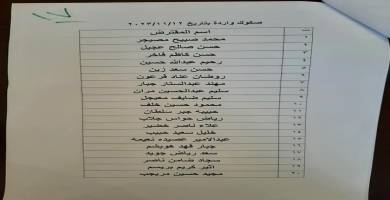 ١٧
صكوك واردة بتاريخ ٢٠٢٣/١١/١٢
اسم المقترض
١ محمد صبيح مصيجر
٢ حسن صالح عجيل
٣ حسن كاظم فاخر
٤ رحيم عبدالله حسين
٥ حسن سعد زبن
٦ روضان عناد فرعون
٧ مهند عبدالستار جبار
٨ سليم عبدالحسين مران
٩ سليم ضايف معيجل
١٠ محمود حسين خلف
١١ حبيبه جبر سلطان
١٢ رياض حواس جلاب
١٣ علاء ناصر خضير
١٤ خليل سعيد حبيب
١٥ عبدالامير عصيده نعيمه
١٦ جبار فهد هويشم
١٧ سعد رياض جويد
١٨ سجاد ضامن ناصر
١٩ اثير كريم بريسم
٢٠ مجيد حسين مريجب